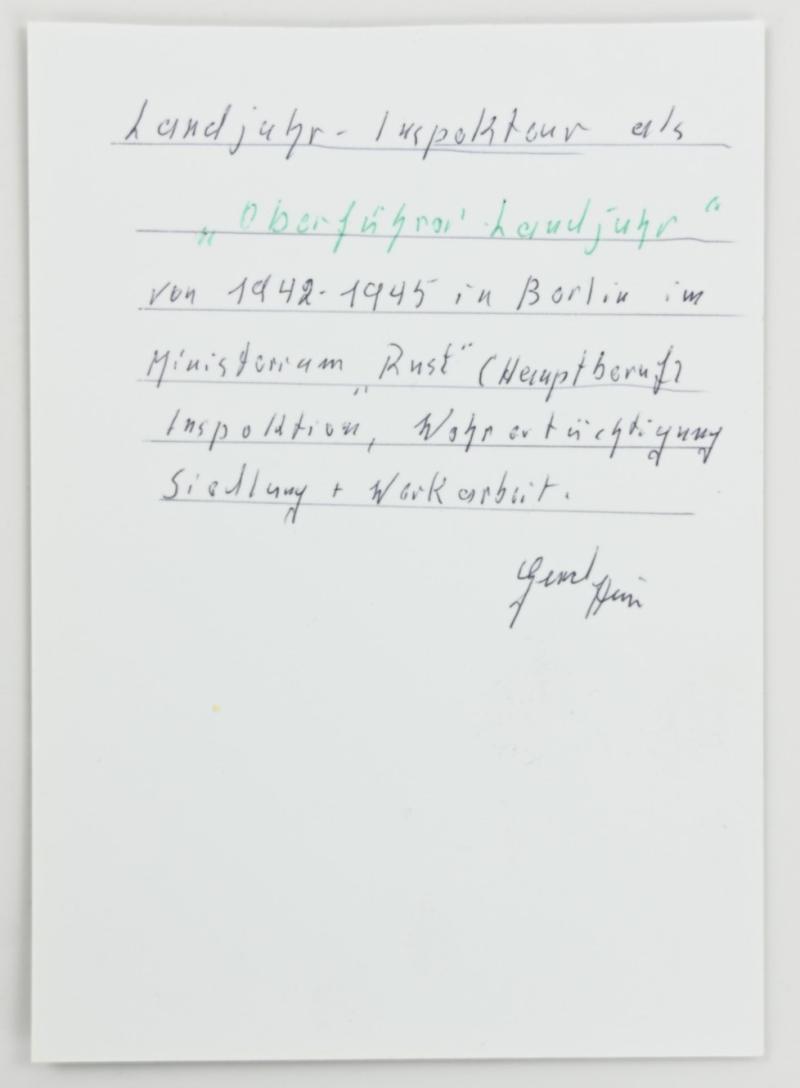 Landjahr-Inspekteur als
„Oberführer Landjahr“
von 1942-1945 in Berlin im
Ministerium „Rust“ (Hauptberuf)
Inspektion, Wehrertüchtigung
Siedlung + Werkarbeit.